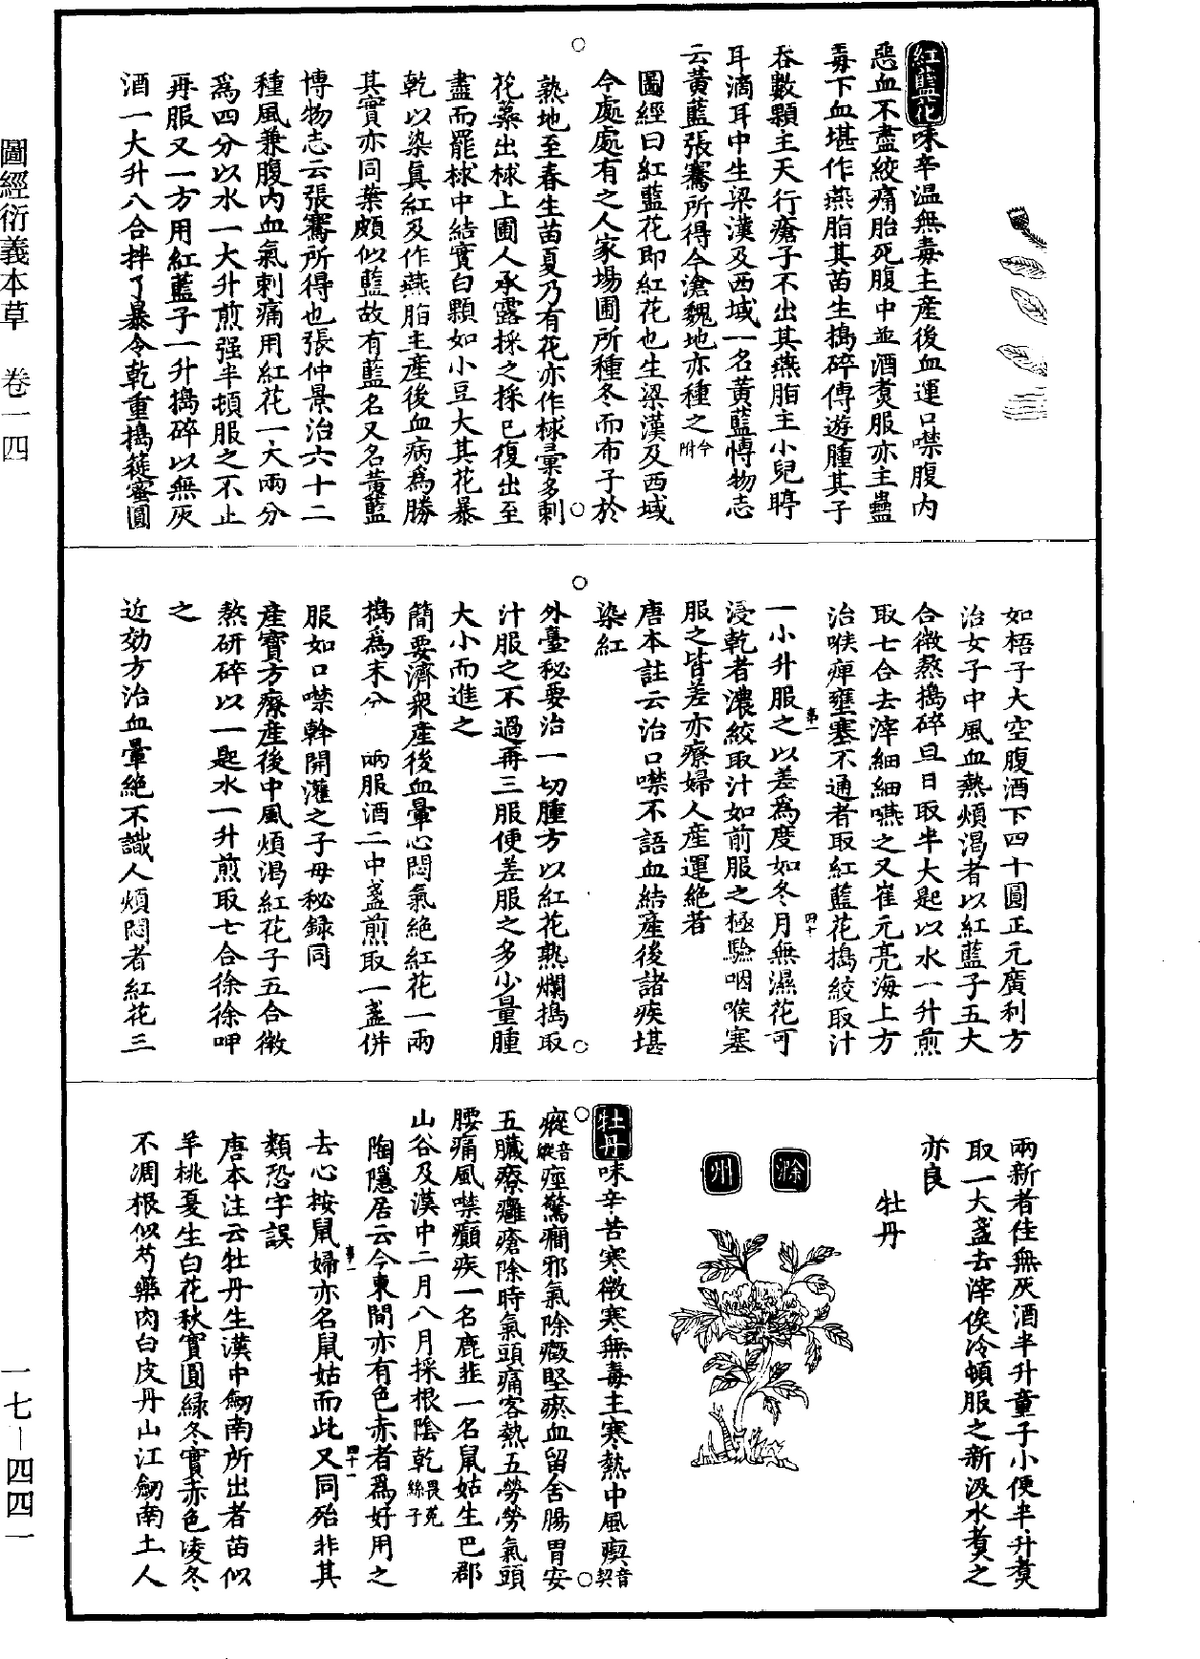 紅藍花味辛温無毒主産後血運口噤腹内
惡血不盡絞痛胎死腹中並酒煑服亦主蠱
毒下血堪作燕脂其苗生搗碎傅遊腫其子
吞數顆主天行瘡子不出其燕脂主小兒聤
耳滴耳中生梁漢及西域一名黃藍愽物志
云黃藍張騫所得今滄魏地亦種之今附
圖經曰紅藍花即紅花也生梁漢及西域
今處處有之人家場圃所種冬而布子於
熟地至春生苗夏乃有花亦作梂彚多刺
花蘂出梂上圃人承露採之採已復出至
盡而罷梂中結實白顆如小豆大其花暴
乾以染真紅及作燕脂主産後血病爲勝
其實亦同葉頗似藍故有藍名又名黃藍
博物志云張騫所得也張仲景治六十二
種風兼腹内血氣刺痛用紅花一大兩分
爲四分以水一大升煎强半頓服之不止
再服又一方用紅藍子一升搗碎以無灰
酒一大升八合拌了暴令乾重搗篵蜜圓
如梧子大空腹酒下四十圓正元廣利方
治女子中風血熱煩渴者以紅藍子五大
合微熬搗碎旦日取半大匙以水一升煎
取七合去滓細細嚥之又崔元亮海上方
治喉痺壅塞不通者取紅藍花搗絞取汁
一小升服之以差爲度如冬月無濕花可
浸乾者濃絞取汁如前服之極驗咽喉塞
服之皆差亦療婦人産運絶者
唐本註云治口噤不語血結産後諸疾堪
染紅
外臺秘要治一切腫方以紅花熟爛搗取
汁服之不過再三服便差服之多少量腫
大小而進之
簡要濟衆産後血暈心悶氣絶紅花一兩
搗爲末分 兩服酒二中盞煎取一盞併
服如口噤斡開灌之子母秘録同
産寶方療産後中風煩渴紅花子五合微
熬研碎以一匙水一升煎取七合徐徐呷
之
近効方治血暈絶不識人煩悶者紅花三
兩新者佳無灰酒半升童子小便半升煑
取一大盞去滓俟冷頓服之新汲水煑之
亦良
牡丹
滁州
牡丹味辛苦寒微寒無毒主寒熱中風瘈音契
瘲音縱痙驚癇邪氣除癥堅瘀血留舍腸胃安
五臟療癰瘡除時氣頭痛客熱五勞勞氣頭
腰痛風噤癲疾一名鹿韭一名鼠姑生巴郡
山谷及漢中二月八月採根陰乾畏菟絲子
陶隱居云今東間亦有色赤者爲好用之
去心按鼠婦亦名鼠姑而此又同殆非其
類恐字誤
唐本注云牡丹生漢中劒南所出者苗似
羊桃夏生白花秋實圓緑冬實赤色凌冬
不凋根似芍藥肉白皮丹山江劒南土人
第一
四十
第一
四十一
圖經衍義本草 卷一四
一七－四四一